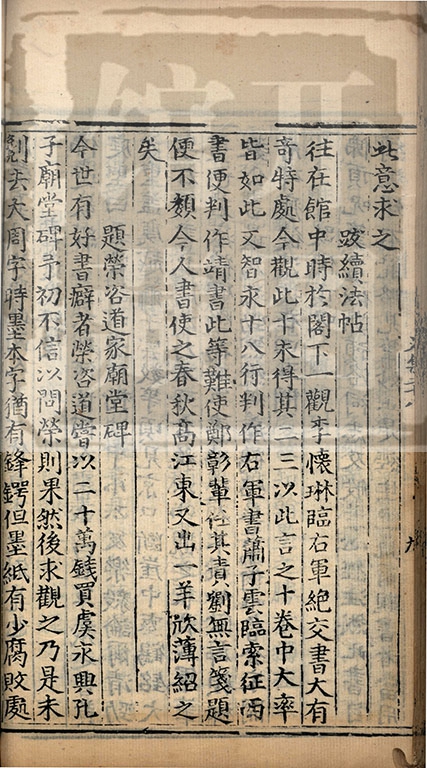 此意求之
跋續法帖
往在館中時於閣下一觀李懷琳臨右軍絕交書大有
奇特處今觀此十未得其二三以此言之十卷中大率
皆如此又智永十八行判作右軍書蕭子雲臨索征西
書便判作靖書此等難使鄭彰輩任其責劉無言箋題
便不類今人書使之春秋高江東又出一羊欣薄紹之
矣
題榮咨道家廟堂碑
今世有好書癖者榮咨道嘗以二十萬錢買虞永興孔
子廟堂碑予初不信以問榮則果然後求觀之乃是未
刓去大周字時墨本字猶有鋒鍔但墨紙有少腐敗處